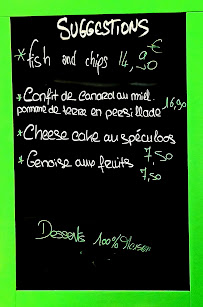 SUGGESTIONS
* fish and chips 14,90 €
* Confit de canard au miel
pomme de terre en persillade 16,90
* Cheese cake au spéculoos
7,50
* Genoise aux fruits
7,50
Desserts 100%